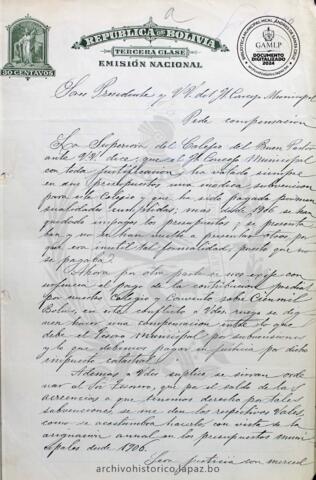 a
REPÚBLICA DE BOLIVIA
TERCERA CLASE
EMISIÓN NACIONAL
30 CENTAVOS
GAMLP
DOCUMENTO
DIGITALIZADO
2024
Presidente y VV. del H. Concejo Municipal
Pide compensación
La Superiora del Colegio del Buen Pastor
ante VV. dice: que el H. Concejo Municipal
con toda justificación, ha votado siempre
en sus presupuestos una módica subvención
para este Colegio, que ha sido pagada por
mas desde 1906 se han
quedado impagos los presupuestos, se presenta
han y no se han vuelto a presentar otros por
que era inutil tal formalidad, puesto que no
se pagaba.
Ahora por otra parte se nos exije con
el pago de la contribución predial
por nuestro Colegio y Convento sobre Cien mil
Bolivs, en este conflicto a Udes ruego se dig
nen hacer una compensación entre lo que
debe el Tesoro Municipal por subvenciones
y lo que debemos pagar en justicia por dicho
impuesto catastral.
Además a Udes suplico se sirvan orde
nar al Sr Tesorero, que por el saldo de las
acreencias a que tenemos derecho por tales
subvenciones se me den los respectivos Vales,
como se acostumbra hacerlo con vista de la
asignación anual en los presupuestos muni
cipales desde 1906.
Será justicia con merced
archivohistorico.lapaz.bo